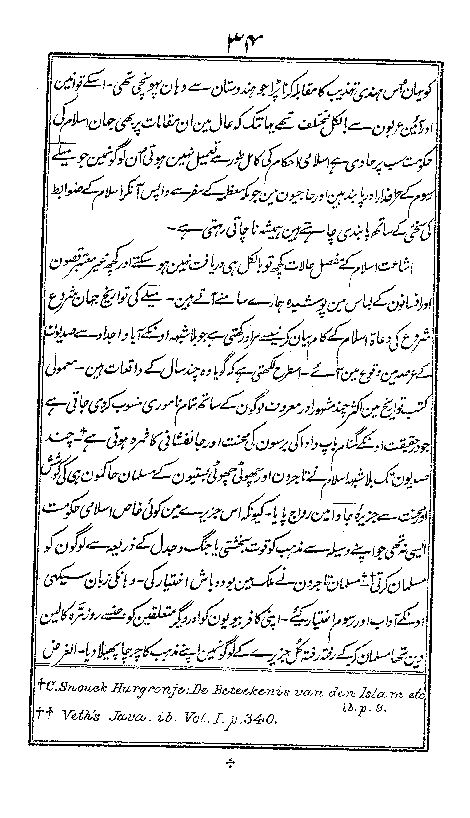 ۳۴
کو یہان اُس ہندی تہذیب کا مقابلہ کرنا پڑا جو ہندوستان سے وہان پہونچی تھی۔ اسکے قوانین
اور آئین عربون سے بالکل مختلف تھے یہانتک کہ حال مین ان مقامات پر بھی جہان اسلام کی
حکومت سب پر حاوی ہے اسلامی احکام کی کامل طور سے تعمیل نہین ہوتی اُن لوگونمین جو پہلے
رسوم کے طرفدار اور پابند ہین اور حاجیون مین جو مکہ معظمہ کے سفر سے واپس آنکر اسلام کے ضوابط
کی سختی کے ساتھ پابندی چاہتے ہین ہمیشہ ناچاقی رہتی ہے۔
اشاعت اسلام کے مفصل حالات کچھ تو بالکل ہی دریافت نہین ہو سکتے اور کچھ غیر معتبر قصون
اور افسانون کے لباس مین پوشیدہ ہمارے سامنے آتے ہین۔ پہلے کی تواریخ جہان شروع
شروع کی دعاۃ اسلام کے کام بیان کرنیسے سروکار رکھتی ہے جو بلاشبہہ اونکے آبا و اجداد سے صدیون
کے عرصہ مین وقوع مین آئے۔ اسطرح لکھتی ہے کہ گویا وہ چند سال کے واقعات ہین۔ معمولی
کتب تواریخ مین اکثر چند مشہور اور معروف لوگون کے ساتھ تمام ناموری منسوب کردی جاتی ہے
جو درحقیقت اونکے گمنام باپ دادا کی برسون کی محنت اور جانفشانی کا ثمرہ ہوتی ہے† چند
صدیون تک بلاشبہہ اسلام نے تاجرون اور چھوٹی چھوٹی بستیون کے مسلمان حاکمون ہی کی کوشش
اور محنت سے جزیرۂ جاوا مین رواج پایا۔ کیونکہ اس جزیرے مین کوئی خاص اسلامی حکومت
ایسی نہ تھی جو اپنے وسیلہ سے مذہب کو قوت بخشتی یا جنگ و جدل کے ذریعہ سے لوگون کو
مسلمان کرتی†† مسلمان تاجرون نے ملک مین بود و باش اختیار کی۔ وہانکی زبان سیکھی
اونکے آداب اور رسوم اختیار کیئے۔ اپنی کافر بیویون کو اور دیگر متعلقین کو جنسے روزمرہ کا لین
دین تھا مسلمان کر کے رفتہ رفتہ کل جزیرے کے لوگونمین اپنے مذہب کا چرچا پھیلا دیا۔ الغرض
† C. Snouck Hurgronje: De Beteekenis van den Islam etc
ib. p. 9.
†† Veth's Java. ib. Vol. I. p. 340.